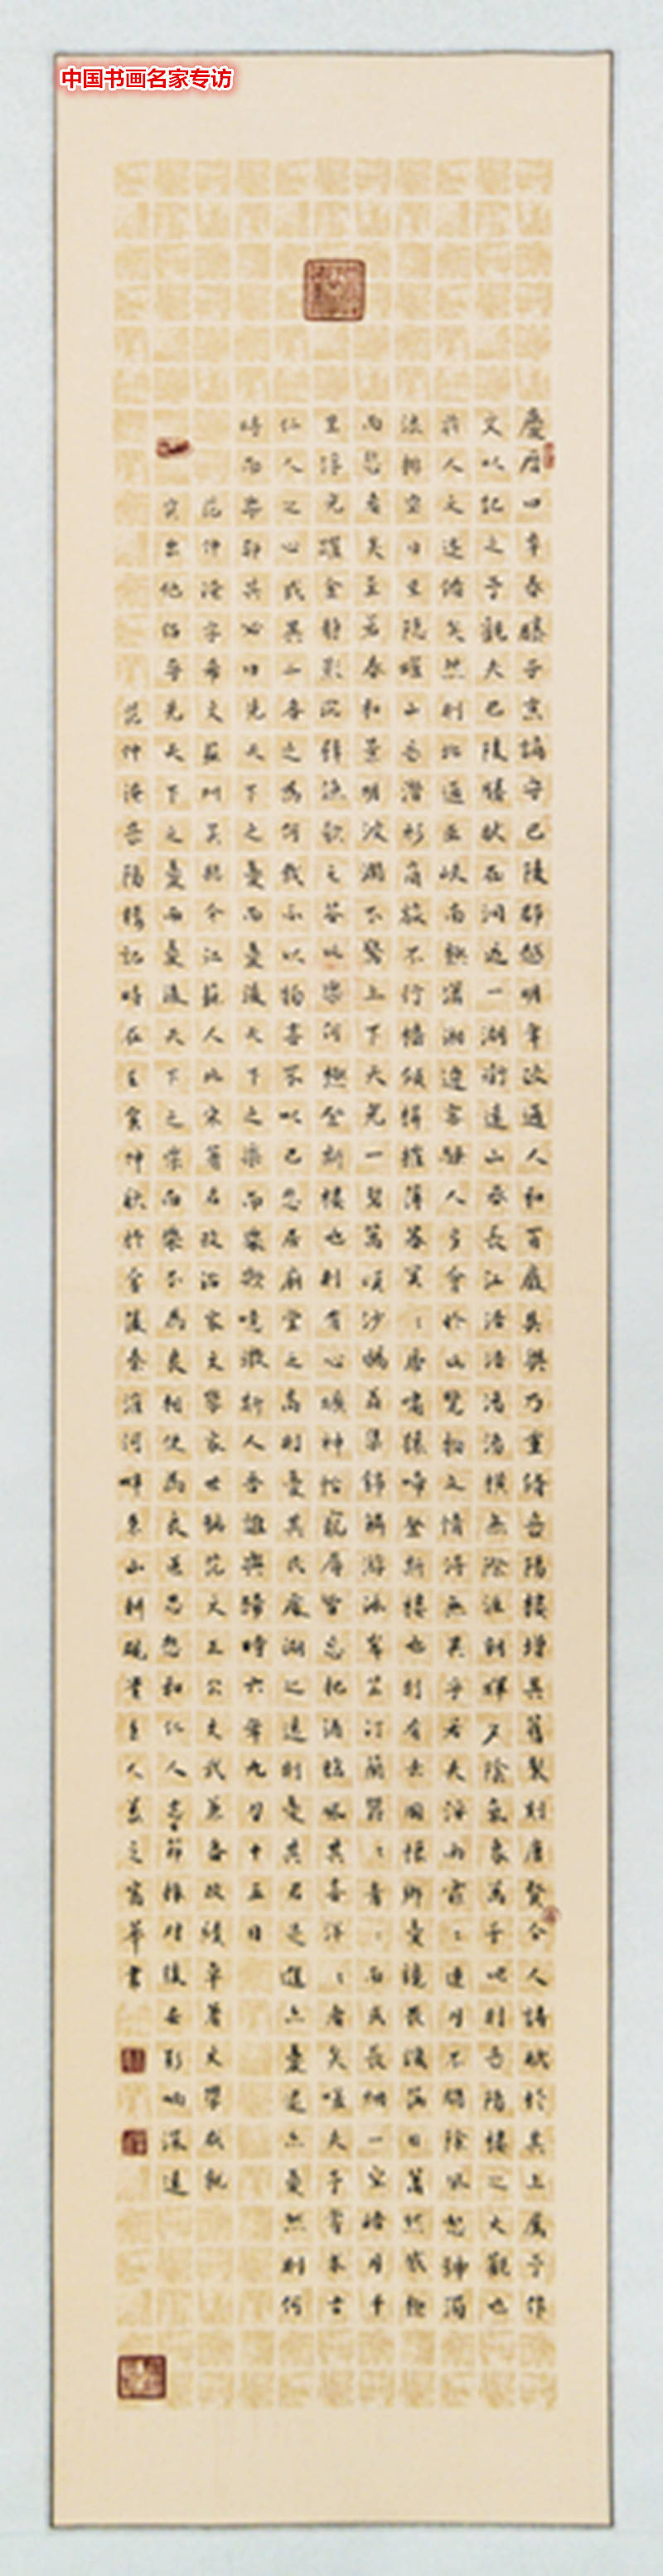 中国书画名家专访
慶曆四年春滕子京謫守巴陵郡越明年政通人和百廢具興乃重脩岳陽樓增其舊製刻唐賢今人詩賦於其上屬予作
文以記之予觀夫巴陵勝狀在洞庭一湖銜遠山吞長江浩浩湯湯橫無際涯朝暉夕陰氣象萬千此則岳陽樓之大觀也
前人之述備矣然則北通巫峽南極瀟湘遷客騷人多會於此覽物之情得無異乎若夫淫雨霏〻連月不開陰風怒號濁
浪排空日星隱曜山岳潛形商旅不行檣傾楫摧薄暮冥〻虎嘯猿啼登斯樓也則有去國懷鄉憂讒畏譏滿目蕭然感極
而悲者矣至若春和景明波瀾不驚上下天光一碧萬頃沙鷗翔集錦鱗游泳岸芷汀蘭郁〻青〻而或長煙一空皓月千
里浮光躍金靜影沉璧漁歌互答此樂何極登斯樓也則有心曠神怡寵辱皆忘把酒臨風其喜洋〻者矣嗟夫予嘗求古
仁人之心或異二者之為何哉不以物喜不以己悲居廟堂之高則憂其民處湖之遠則憂其君是進亦憂退亦憂然則何
時而樂耶其必曰先天下之憂而憂後天下之樂而樂歟噫微斯人吾誰與歸時六年九月十五日
范仲淹字希文蘇州吳縣今江蘇人北宋著名政治家文學家世稱范文正公文武兼备政績卓著文學成就
突出他倡导先天下之憂而憂後天下之樂而樂不為良相便為良医思想和仁人志士節操對後世影响深遠
范仲淹岳陽樓記時在壬寅仲秋於金陵秦淮河畔山主人富華書